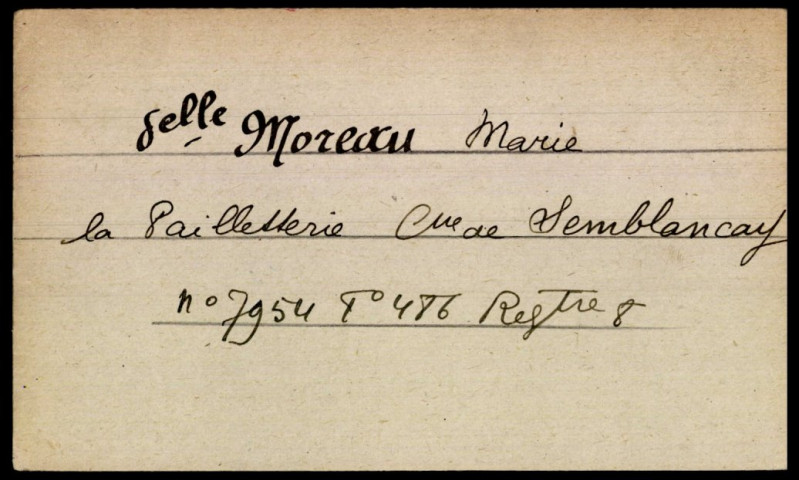 Selle Moreau Marie
la Pailletterie Cne de Semblancay
n° 7954 F° 486 Regtre 8